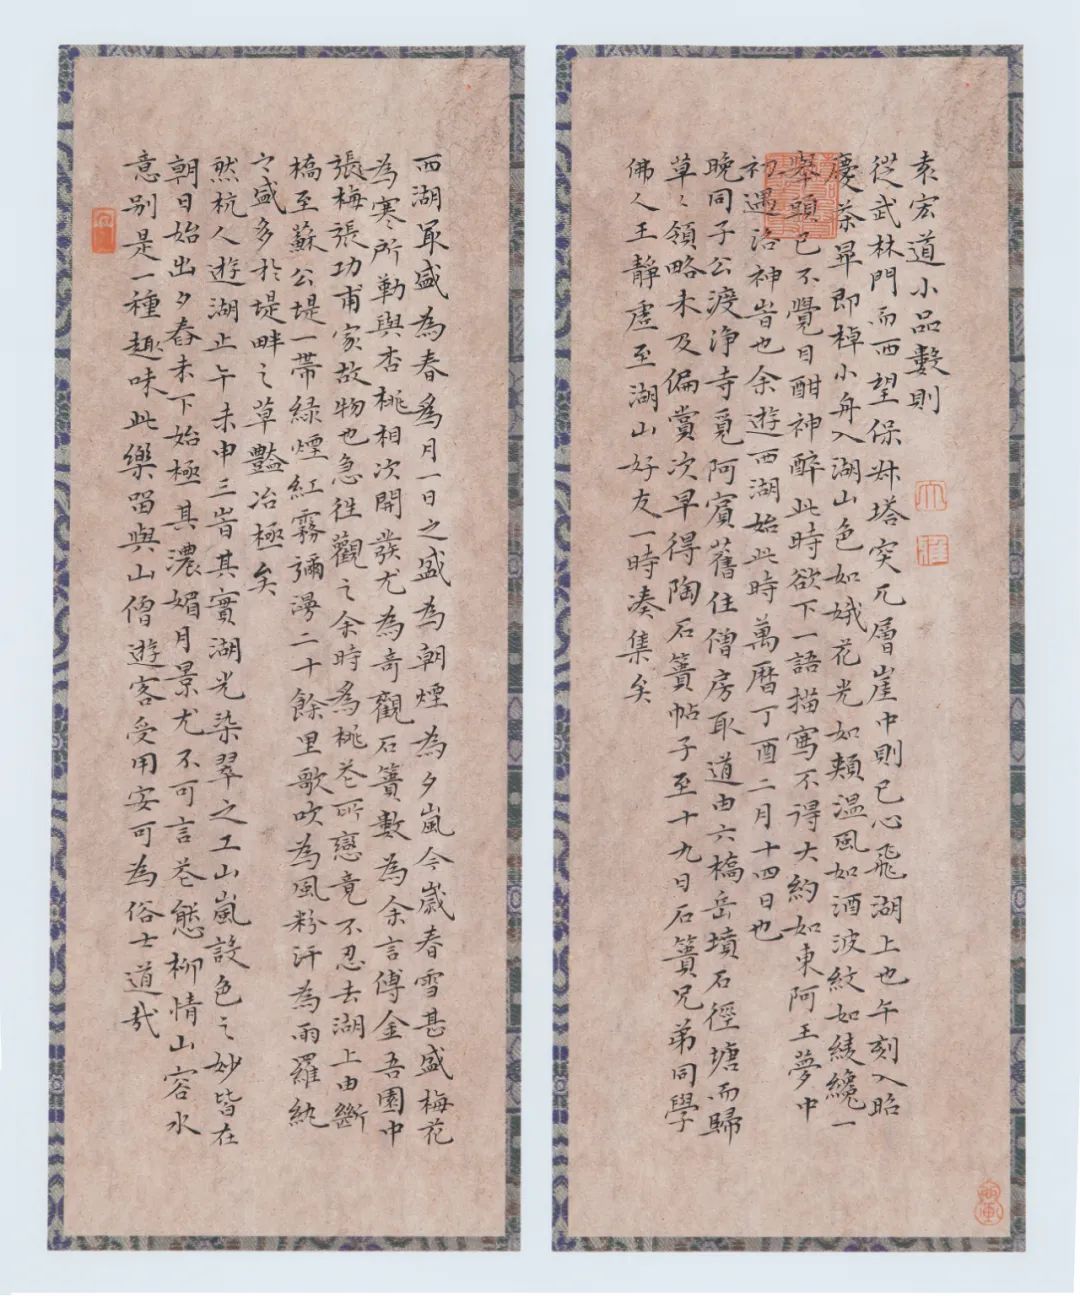 袁宏道小品數則
從武林門而西望保叔塔突兀層崖中則已心飛湖上也午刻入昭
慶茶畢即棹小舟入湖山色如娥花光如頰温風如酒波紋如綾纔一
舉頭已不覺目酣神醉此時欲下一語描寫不得大約如東阿王夢中
初遇洛神旹也余遊西湖始此時萬曆丁酉二月十四日也
晚同子公渡淨寺覓阿賓舊住僧房取道由六橋岳墳石徑塘而歸
草〻領略未及偏賞次早得陶石簣帖子至十九日石簣兄弟同學
佛人王靜虛至湖山好友一時湊集矣
西湖冣盛為春為月一日之盛為朝煙為夕嵐今歲春雪甚盛梅花
為寒所勒與杏桃相次開發尤為奇觀石簣數為余言傅金吾園中
張梅張功甫家故物也急徃觀之余時為桃花所戀竟不忍去湖上由斷
橋至蘇公堤一帶綠煙紅霧彌漫二十餘里歌吹為風粉汗為雨羅紈
之盛多於堤畔之草豔冶極矣
然杭人遊湖止午未申三旹其實湖光染翠之工山嵐設色之妙皆在
朝日始出夕舂未下始極其濃媚月景尤不可言花態柳情山容水
意别是一種趣味此樂留與山僧遊客受用安可為俗士道哉